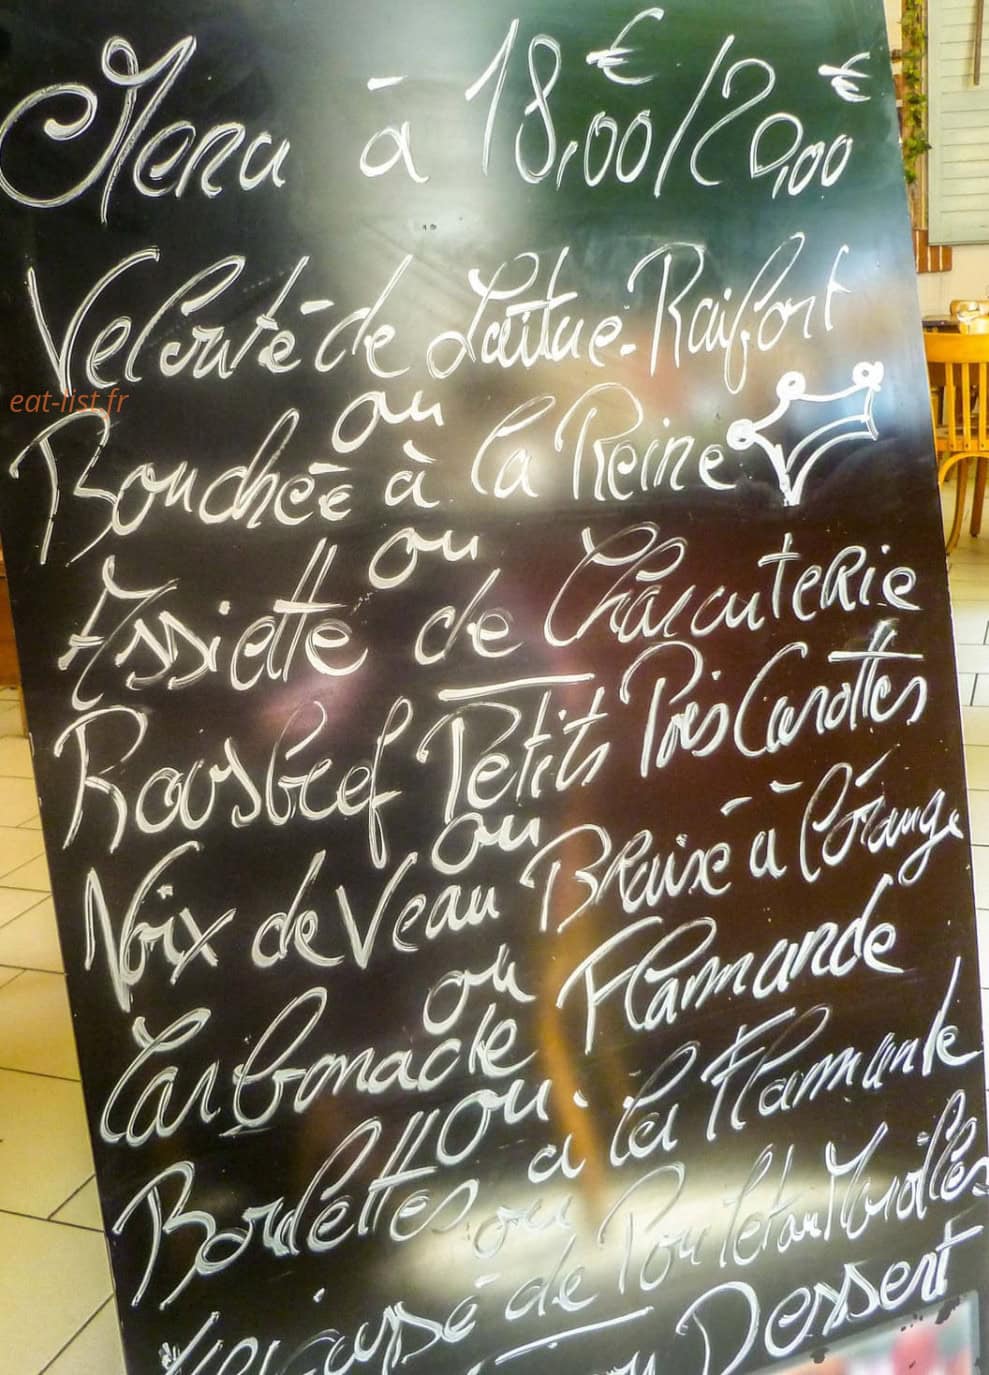 Menu à 18,00€/20,00€
Velouté de Laitue-Raifort
ou
eat-list.fr
Bouchée à la Reine
ou
Assiette de Charcuterie
Roosbeef Petits Pois Carottes
ou
Noix de Veau Braisé à l'Orange
ou
Carbonade Flamande
ou
Bavettes à la Flamande
ou
de Poulet au Maroilles
Dessert